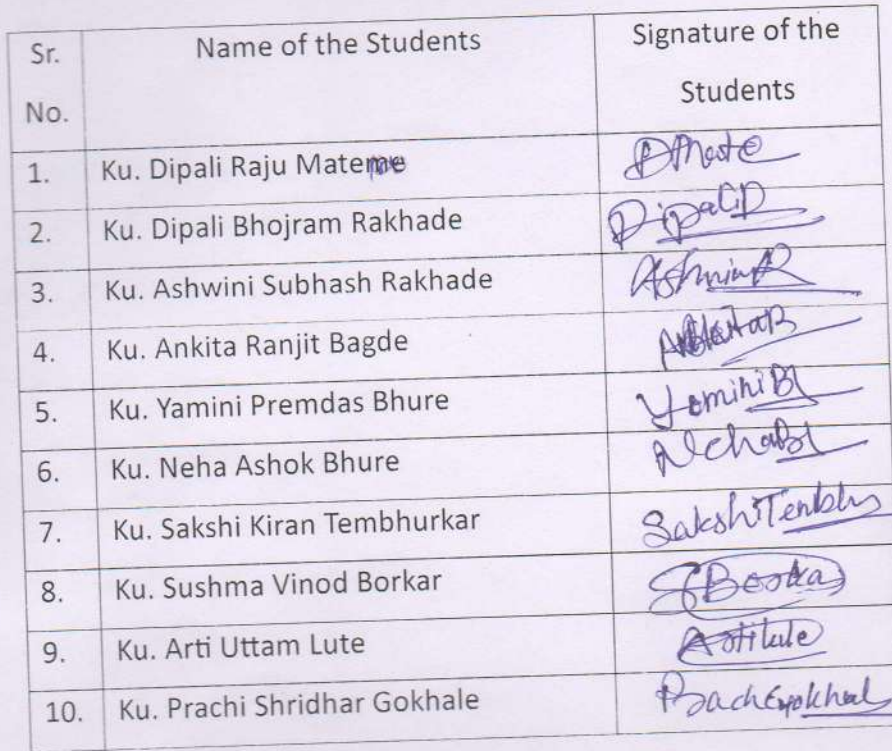 Sr. No. Name of the Students Signature of the Students
1. Ku. Dipali Raju Mateme DMate
2. Ku. Dipali Bhojram Rakhade DipaliD
3. Ku. Ashwini Subhash Rakhade AshwiniR
4. Ku. Ankita Ranjit Bagde AnkitaB
5. Ku. Yamini Premdas Bhure YaminiB
6. Ku. Neha Ashok Bhure NehaB
7. Ku. Sakshi Kiran Tembhurkar Sakshi
8. Ku. Sushma Vinod Borkar
9. Ku. Arti Uttam Lute
10. Ku. Prachi Shridhar Gokhale